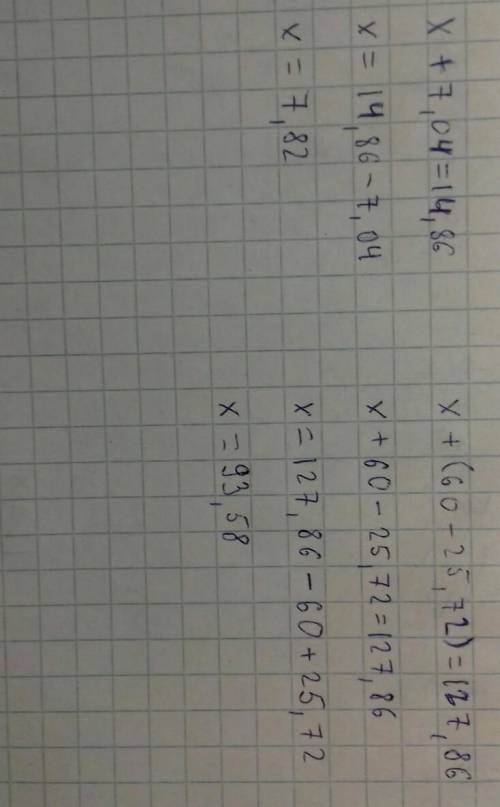 x + 7,04 = 14,86
x = 14,86 - 7,04
x = 7,82
x + (60 - 25,72) = 127,86
x + 60 - 25,72 = 127,86
x = 127,86 - 60 + 25,72
x = 93,58